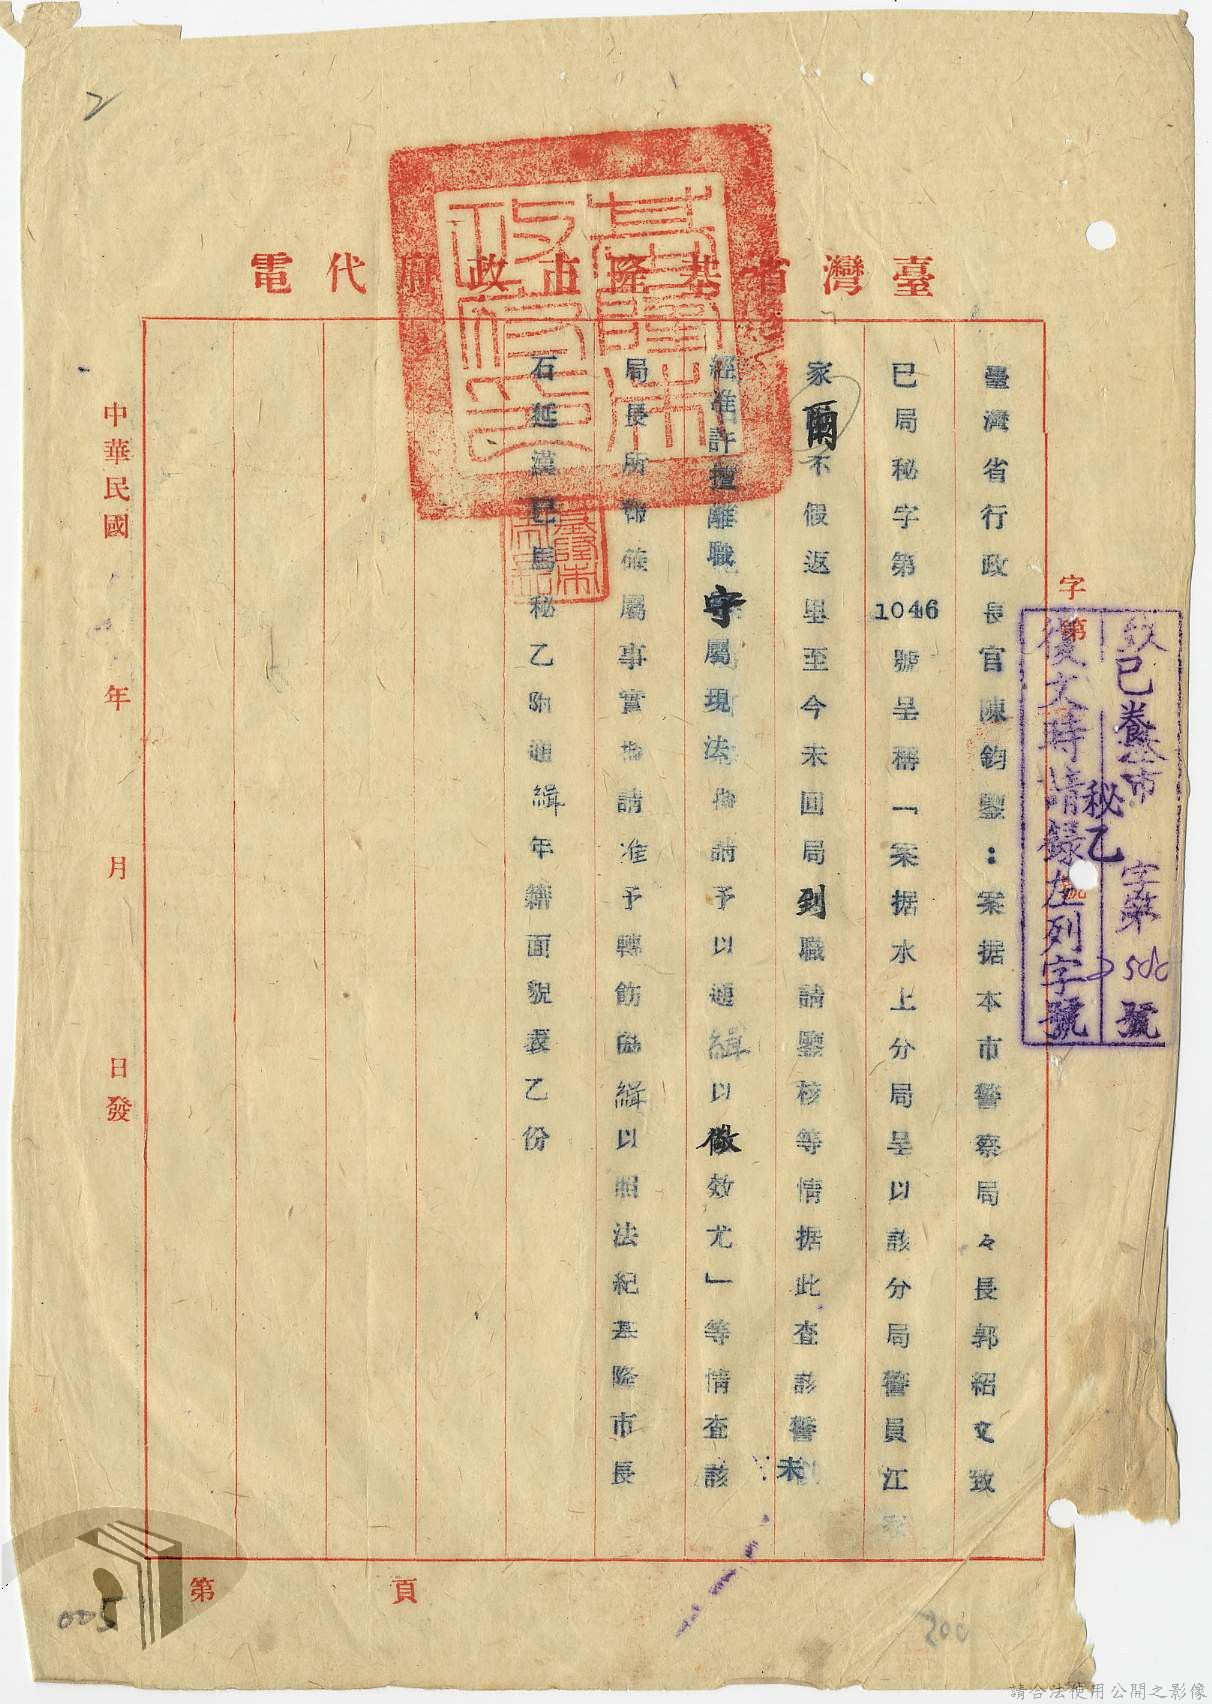 臺灣省基隆市政府代電
字第號
臺灣省行政長官陳鈞鑒：案据本市警察局々長郭紹文致
已局秘字第1046號呈稱「案据水上分局呈以該分局警員江家
家爾不假返里至今未回局到職請鑒核等情据此查該警未
經准許擅離職守屬現法 請予以通緝以儆效尤」等情查該
局長所稱確屬事實 請准予轉飭協緝以照法紀基隆市長
石延漢 秘乙附通緝年籍面貌表乙份
中華民國 年 月 日發
第 頁
已養基市秘乙字第 號
復文時請錄左列字號
基隆市政府印
2
005
200
請合法使用公開之影像